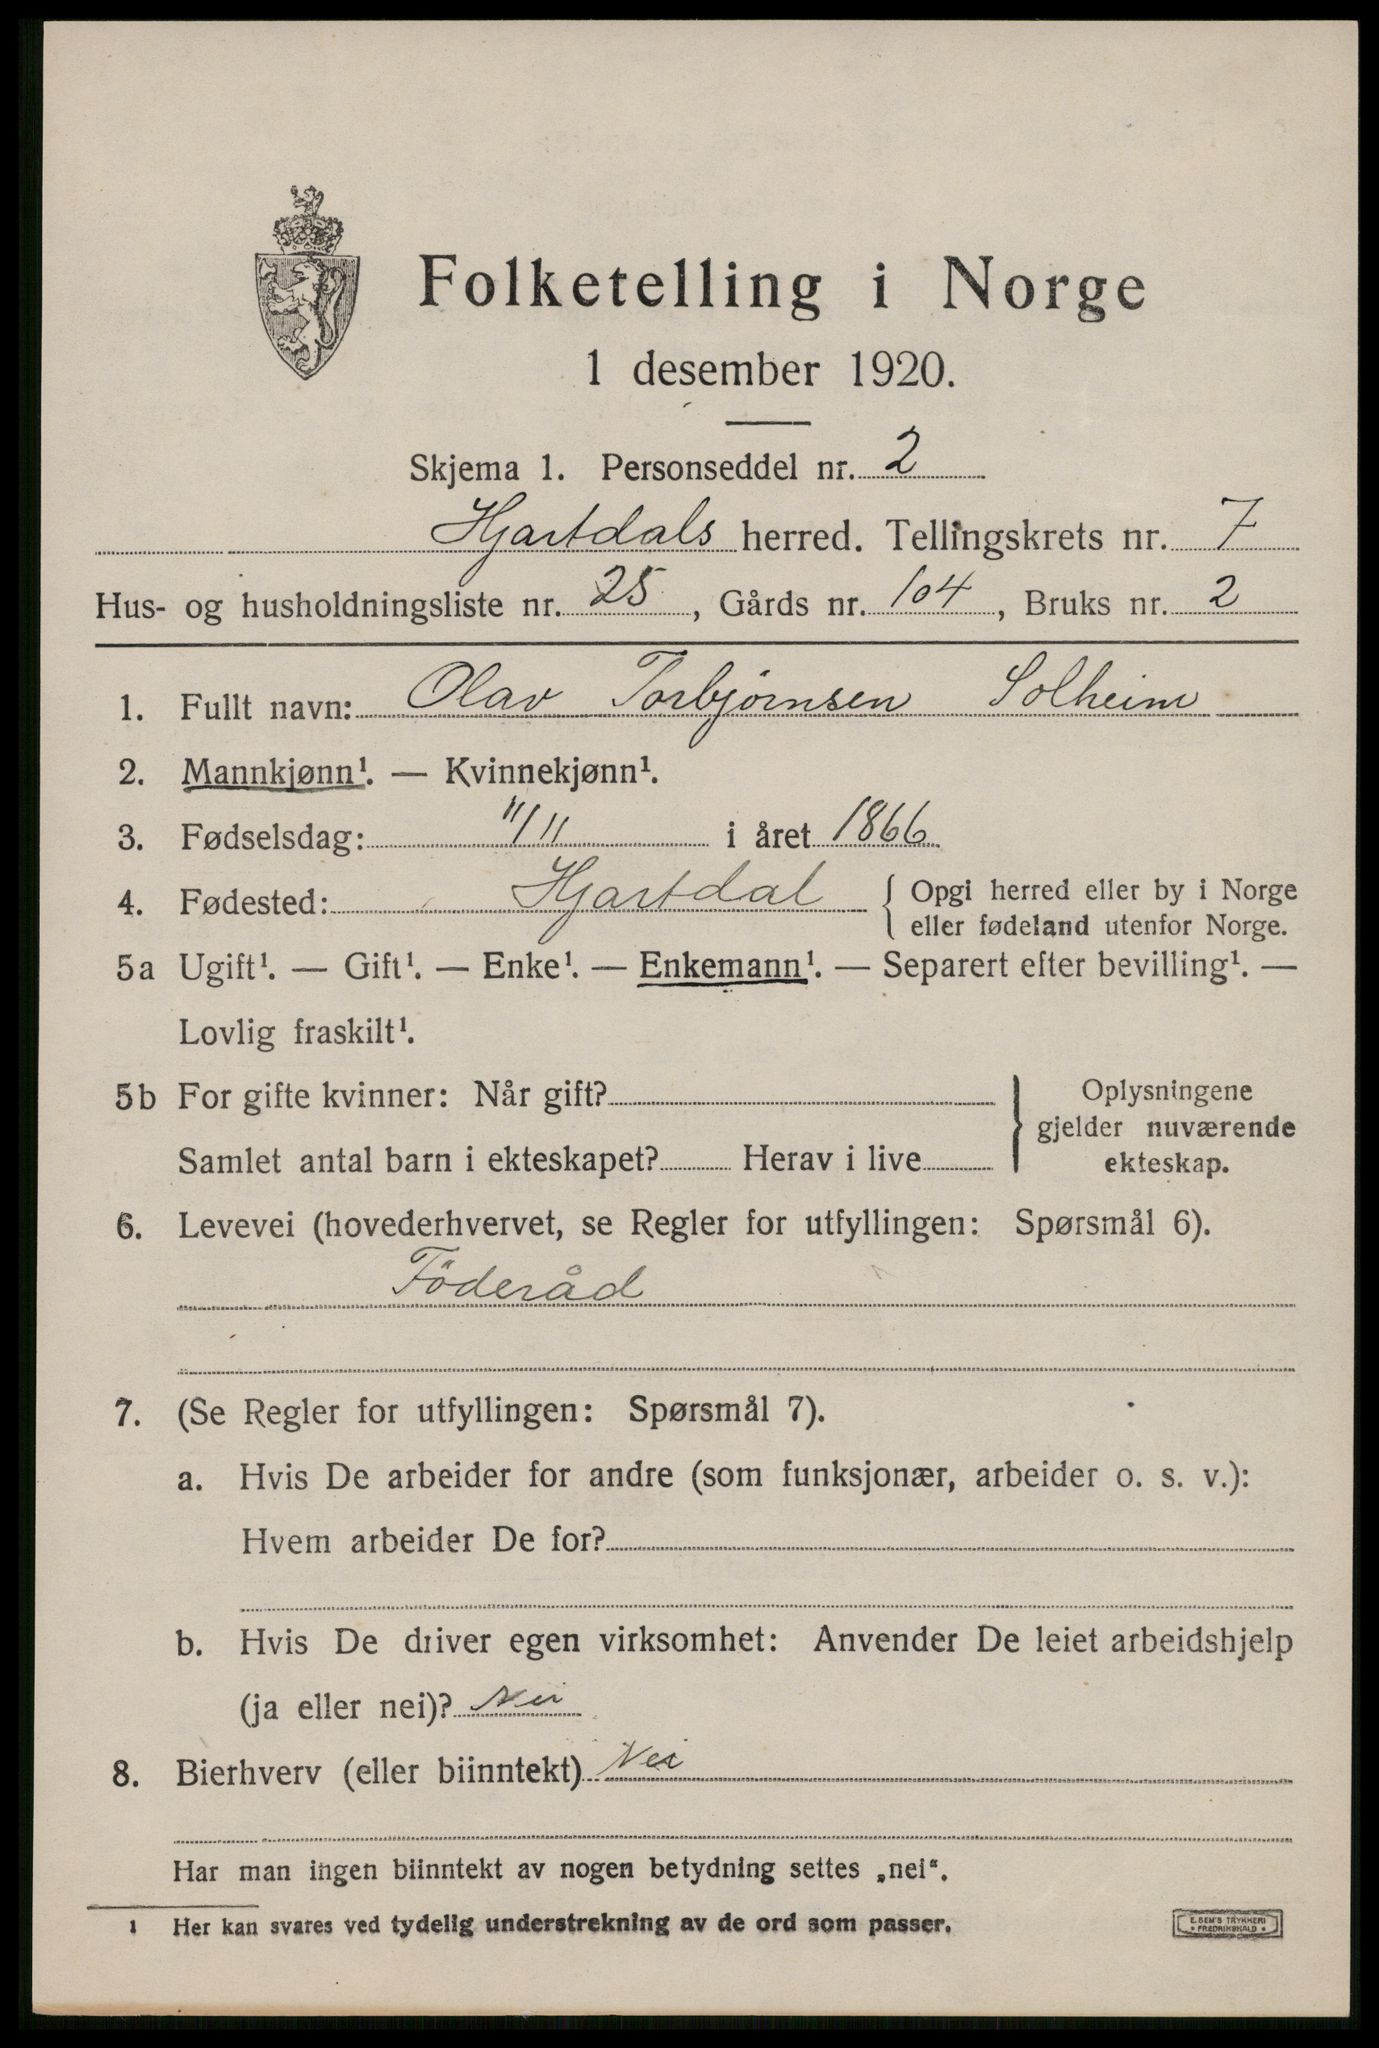 Folketelling i Norge
1 desember 1920.
Skjema 1. Personseddel nr. 2
Hjartdals herred. Tellingskrets nr. 7
Hus- og husholdningsliste nr. 25, Gårds nr. 104, Bruks nr. 2
1. Fullt navn: Olav Torbjørnsen Solheim
2. Mannkjønn¹. — Kvinnekjønn¹.
3. Fødselsdag: 11/11 i året 1866
4. Fødested: Hjartdal { Opgi herred eller by i Norge
eller fødeland utenfor Norge.
5a Ugift¹. — Gift¹. — Enke¹. — Enkemann¹. — Separert efter bevilling¹. —
Lovlig fraskilt¹.
5b For gifte kvinner: Når gift? } Oplysningene
gjelder nuværende
Samlet antal barn i ekteskapet? Herav i live ekteskap.
6. Levevei (hovederhvervet, se Regler for utfyllingen: Spørsmål 6).
Föderåd
7. (Se Regler for utfyllingen: Spørsmål 7).
a. Hvis De arbeider for andre (som funksjonær, arbeider o. s. v.):
Hvem arbeider De for?
b. Hvis De driver egen virksomhet: Anvender De leiet arbeidshjelp
(ja eller nei)? Nei
8. Bierhverv (eller biinntekt) Nei
Har man ingen biinntekt av nogen betydning settes „nei“.
1 Her kan svares ved tydelig understrekning av de ord som passer.
E. SEM'S TRYKKERI
• FREDRIKSHALD •